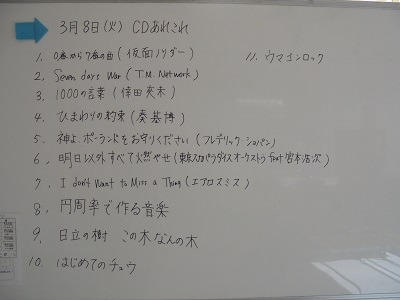 3月8日(火) CDあれこれ
1. 0春から7春の曲(仮面ノリダー)
2. Seven days War (T.M. Network)
3. 1000の言葉(倖田來未)
4. ひまわりの約束(秦基博)
5. 神よ、ポーランドをお守りください(フレデリック・ショパン)
6. 明日以外すべて燃やせ(東京スカパラダイスオーケストラ feat 宮本浩次)
7. I don't Want to Miss a Thing (エアロスミス)
8. 円周率で作る音楽
9. 日立の樹 この木なんの木
10. はじめてのチュウ
11. ウマゴンロック